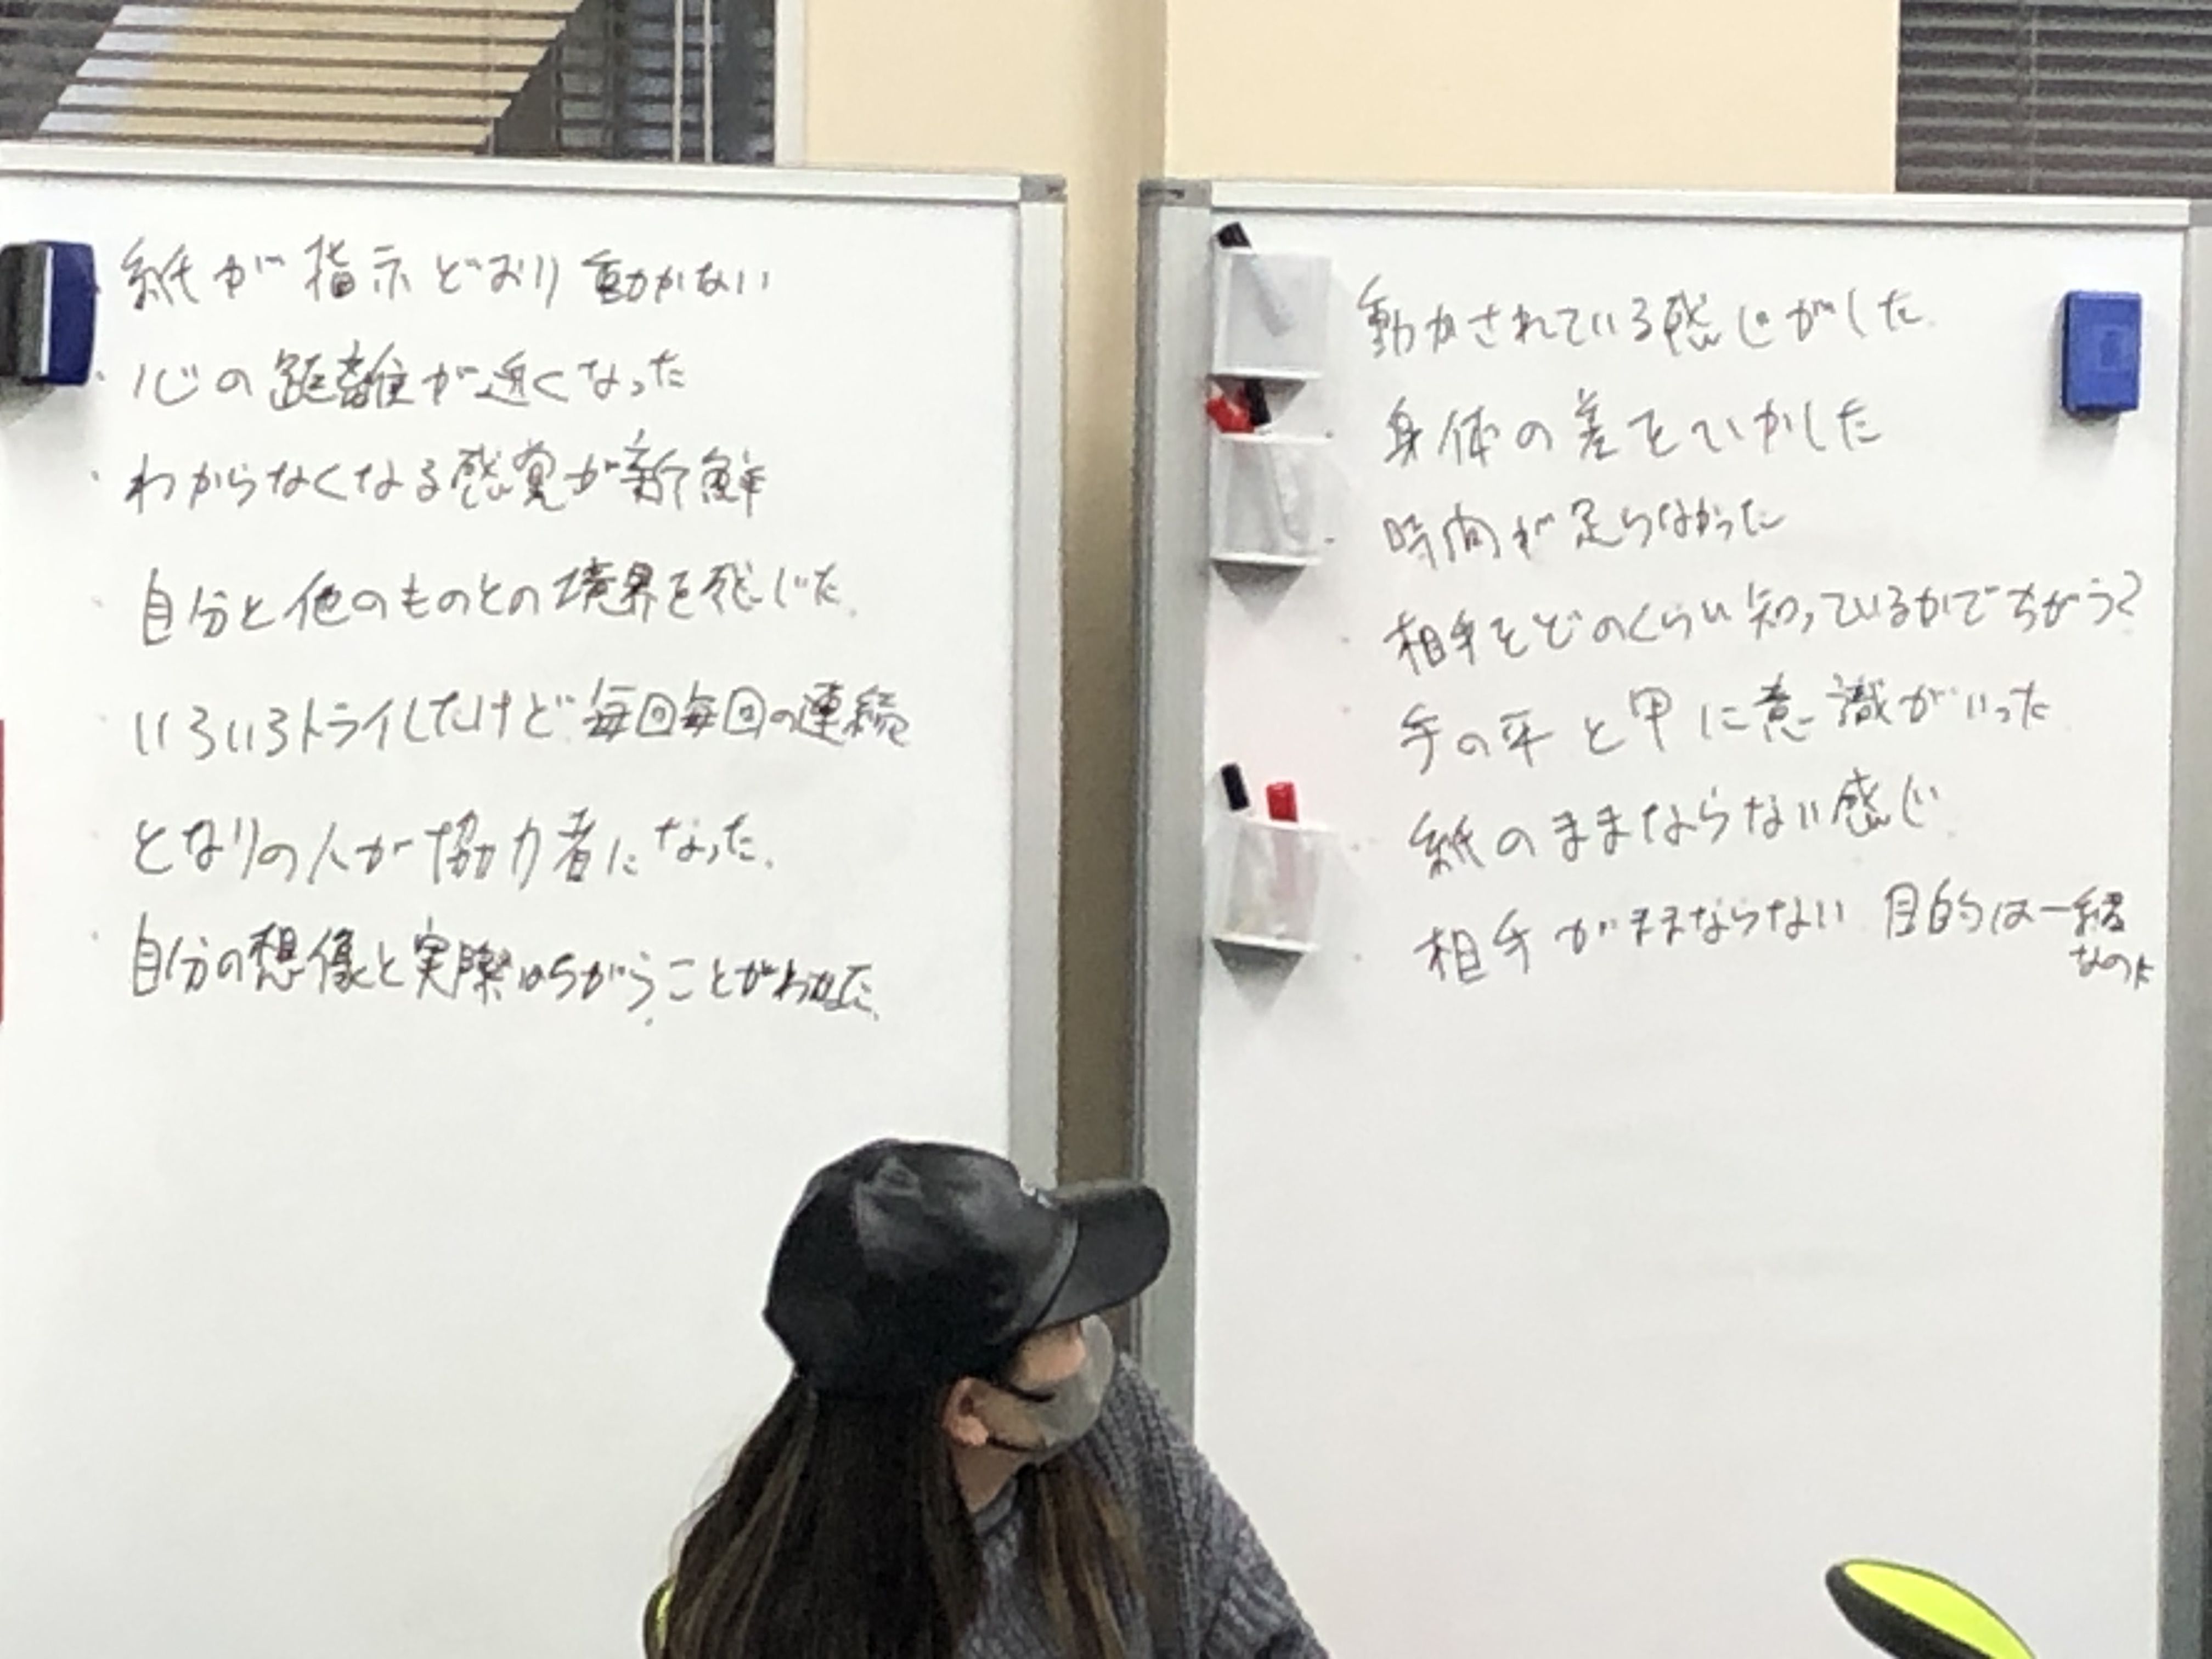 ・紙が指示どおり動かない
・心の距離が近くなった
・わからなくなる感覚が新鮮
・自分と他のものとの境界を感じた.
・いろいろトライしたけど毎回毎回の連続
・となりの人が協力者になった.
・自分の想像と実際はちがうことがわかった.
動かされている感じがした.
・身体の差をいかした
・時間が足らなかった
・相手をどのくらい知っているかでちがう?
・手の平と甲に意識がいった
・紙のままならない感じ
・相手がままならない 目的は一緒
なのに